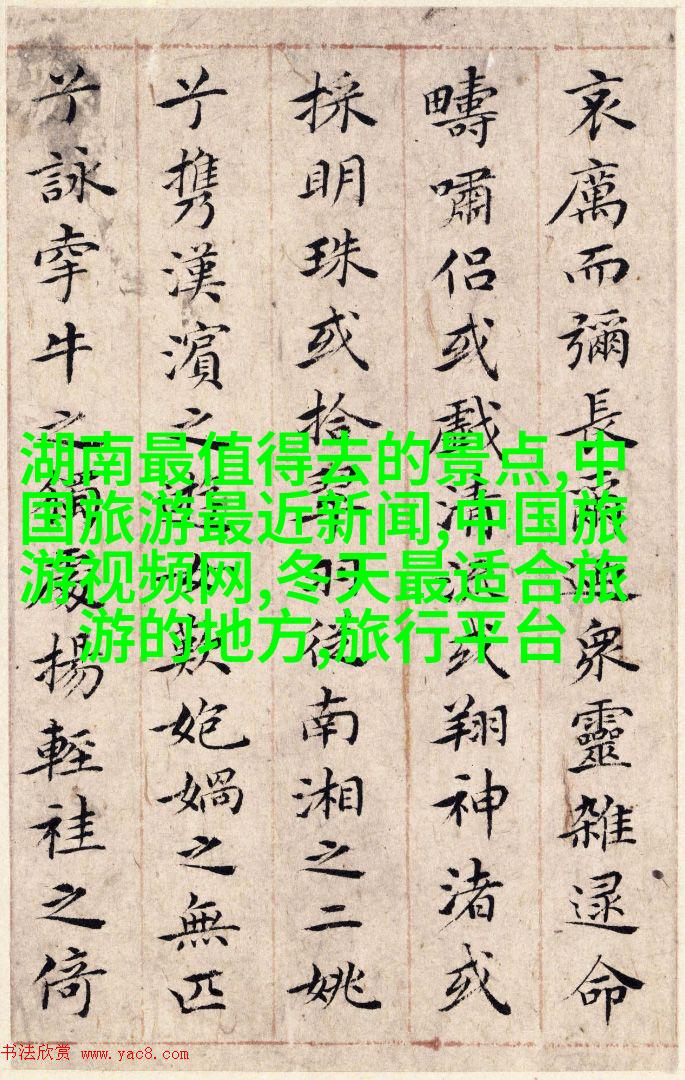 哀厲而彌長爾迺衆靈雜遝命
疇嘯侶或戲清流或翔神渚或
採明珠或拾翠羽從南湘之二姚
兮攜漢濱之遊女歎媧之無匹
兮詠牽牛之獨處揚輕袿之倚
湖南最值得去的景点,中
国旅游最近新闻,中国旅
游视频网,冬天最适合旅
游的地方,旅行平台
书法欣赏 www.yac8.com